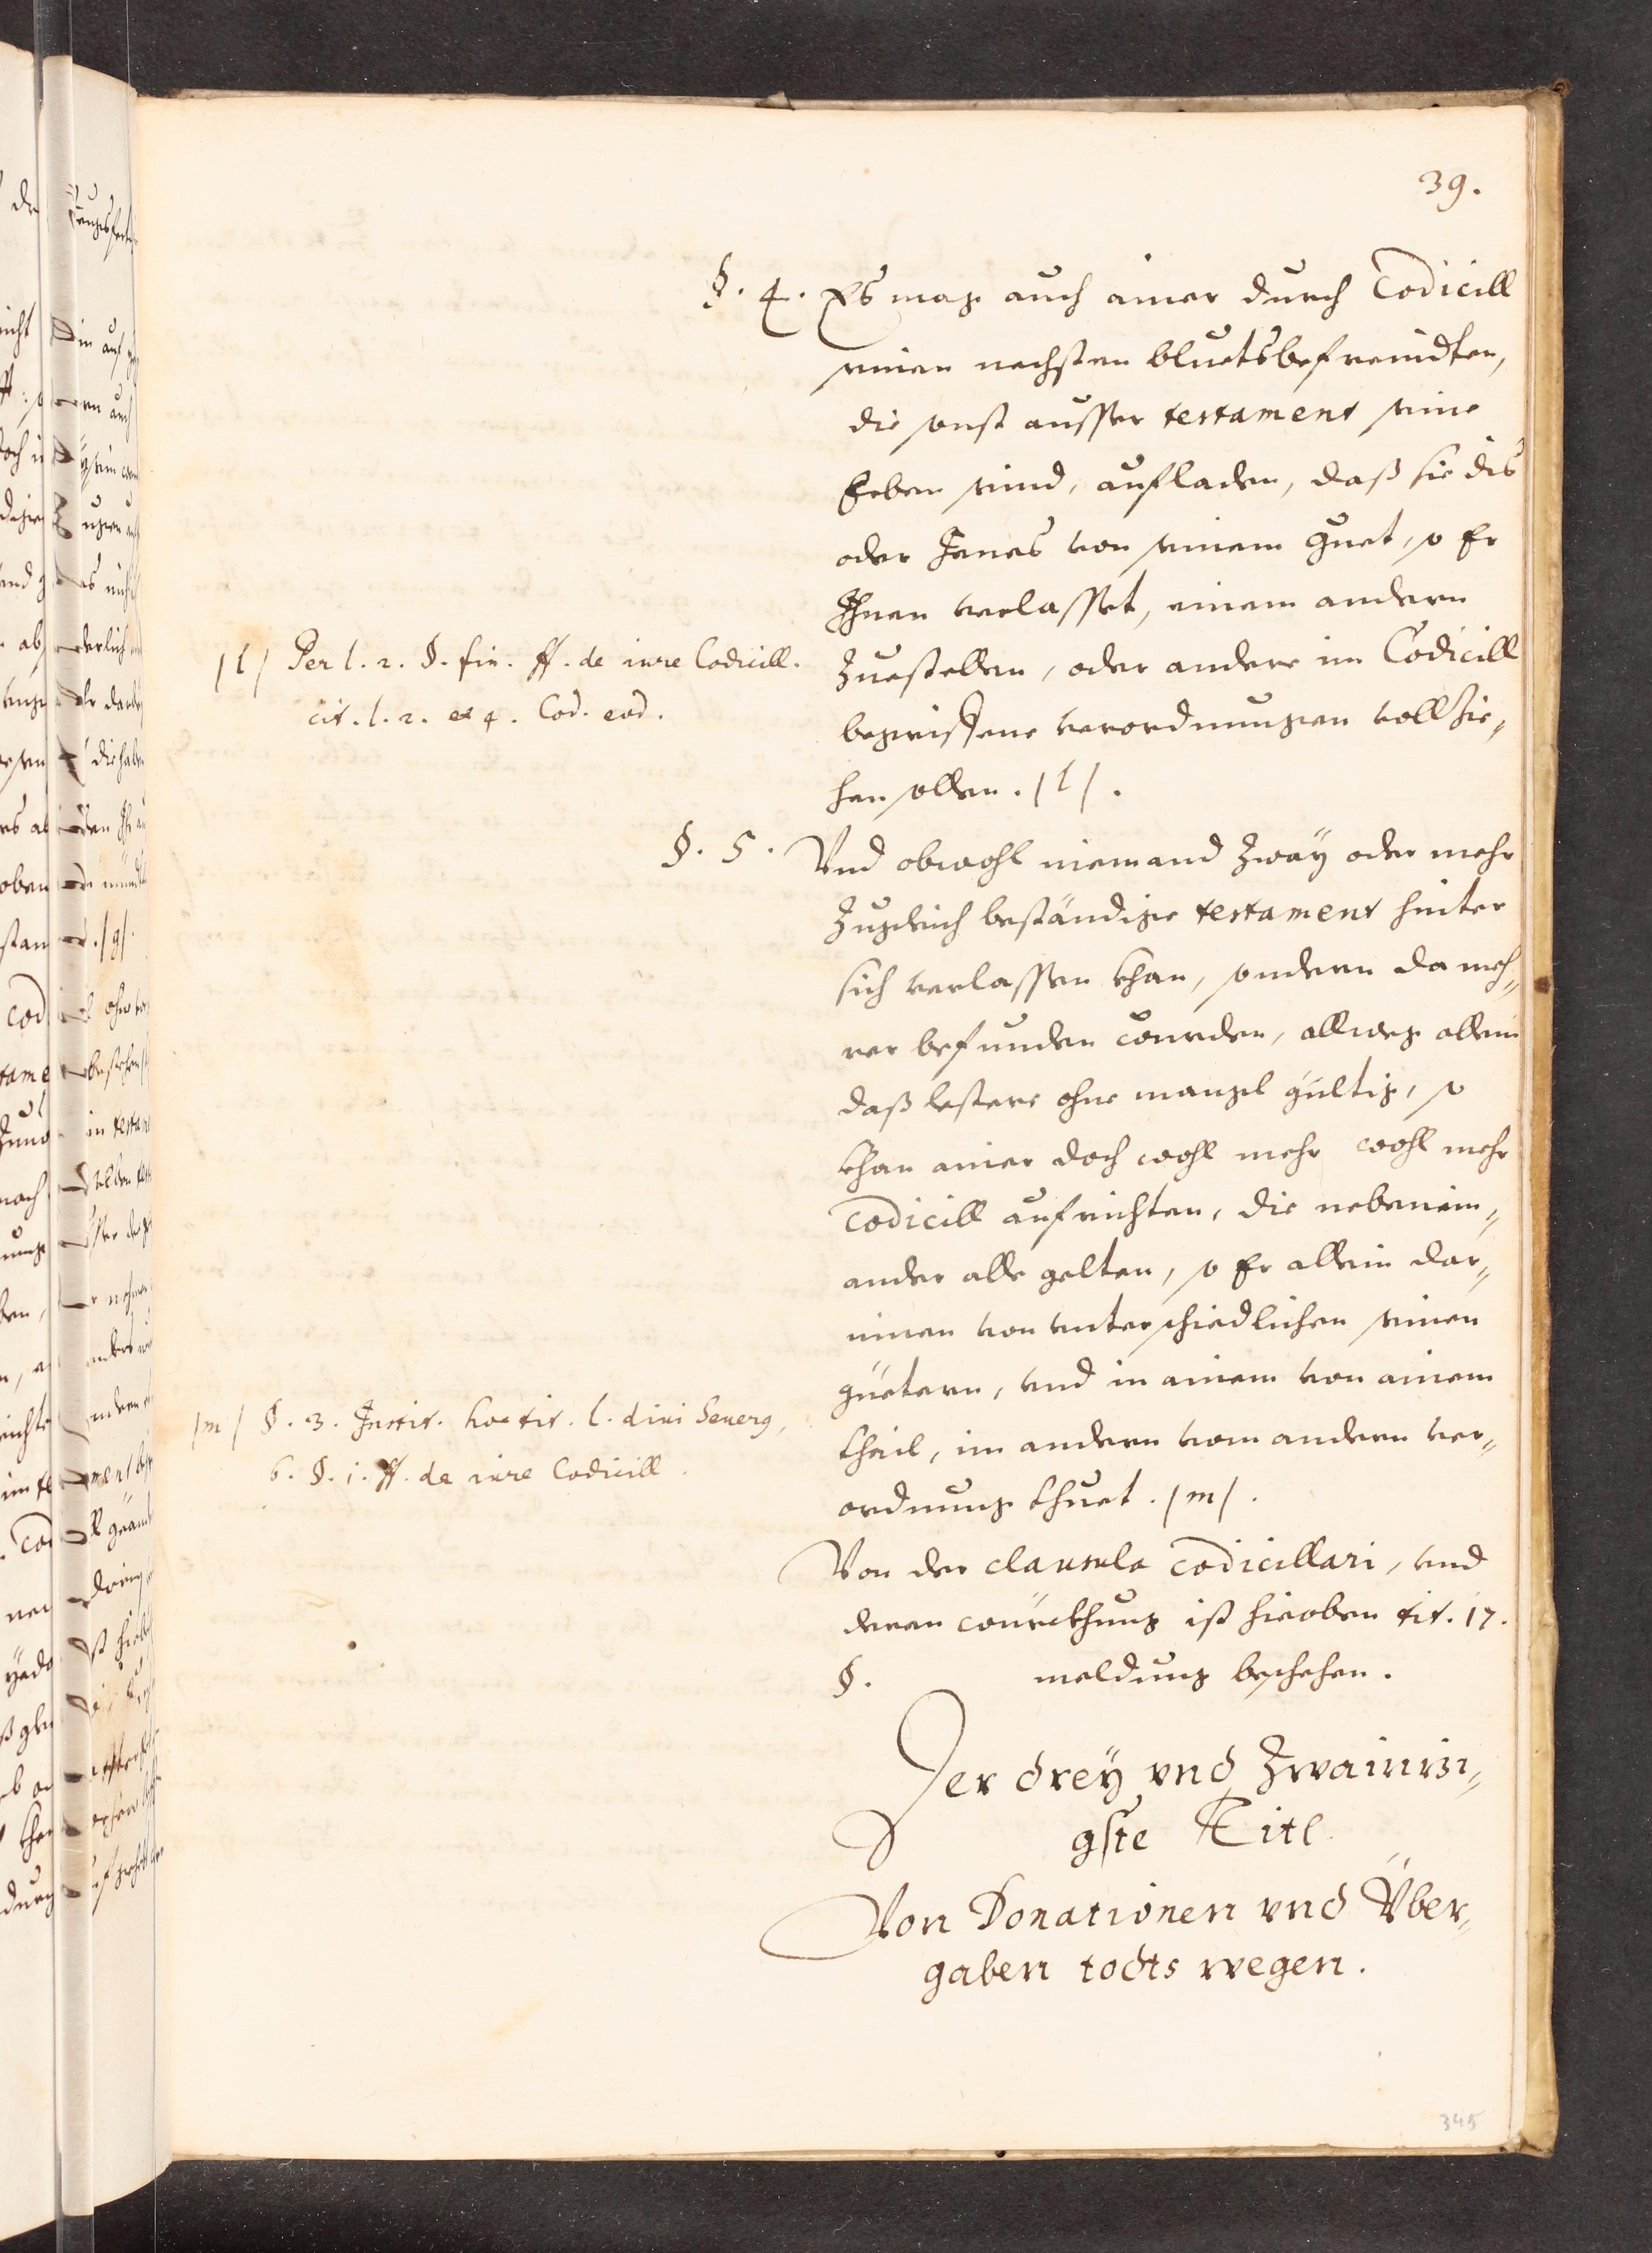 39.
§. 4. Es mag auch ainer durch Codicill
seinen nechsten bluetsbefreündten,
die sonst ausser testament seine
Erben seind, aufladen, daß sie dis
oder Jenes von seinem guet, so Er
Ihnen verlasset, einem andern
Zuestellen, oder andere im Codicill
begriffene verordnungen vollzie„
hen sollen. /l/.
/l/ Per l. 2. §. fin. ff. de iure Codicill.
cit. l. 2. et 4. Cod. eod.
§. 5. Vnd obwohl niemand Zway oder mehr
Zugleich beständige testament hinter
sich verlassen khan, sondern da meh„
rer befunden wurden, allweg allein
daß lestere ohne mangl gültig, so
khan ainer doch wohl mehr wohl mehr
Codicill aufrichten, die nebenein„
ander alle gelten, so Er allein dar„
innen von vnterschiedlichen seinen
güetern, vnd in ainem von ainem
theil, im andern vom andern ver„
ordnung thuet. /m/.
/m/ §. 3. Instit. hoc tit. l. diui Seuerg,
6. §. i. ff. de iure Codicill.
Von der clausula Codicillari, vnd
deren würckhung ist hieoben tit. 17.
§. meldung beschehen.
Der drey vnd Zwainzi„
gste Titl.
Von Donationen vnd Über„
gaben todts wegen.
345